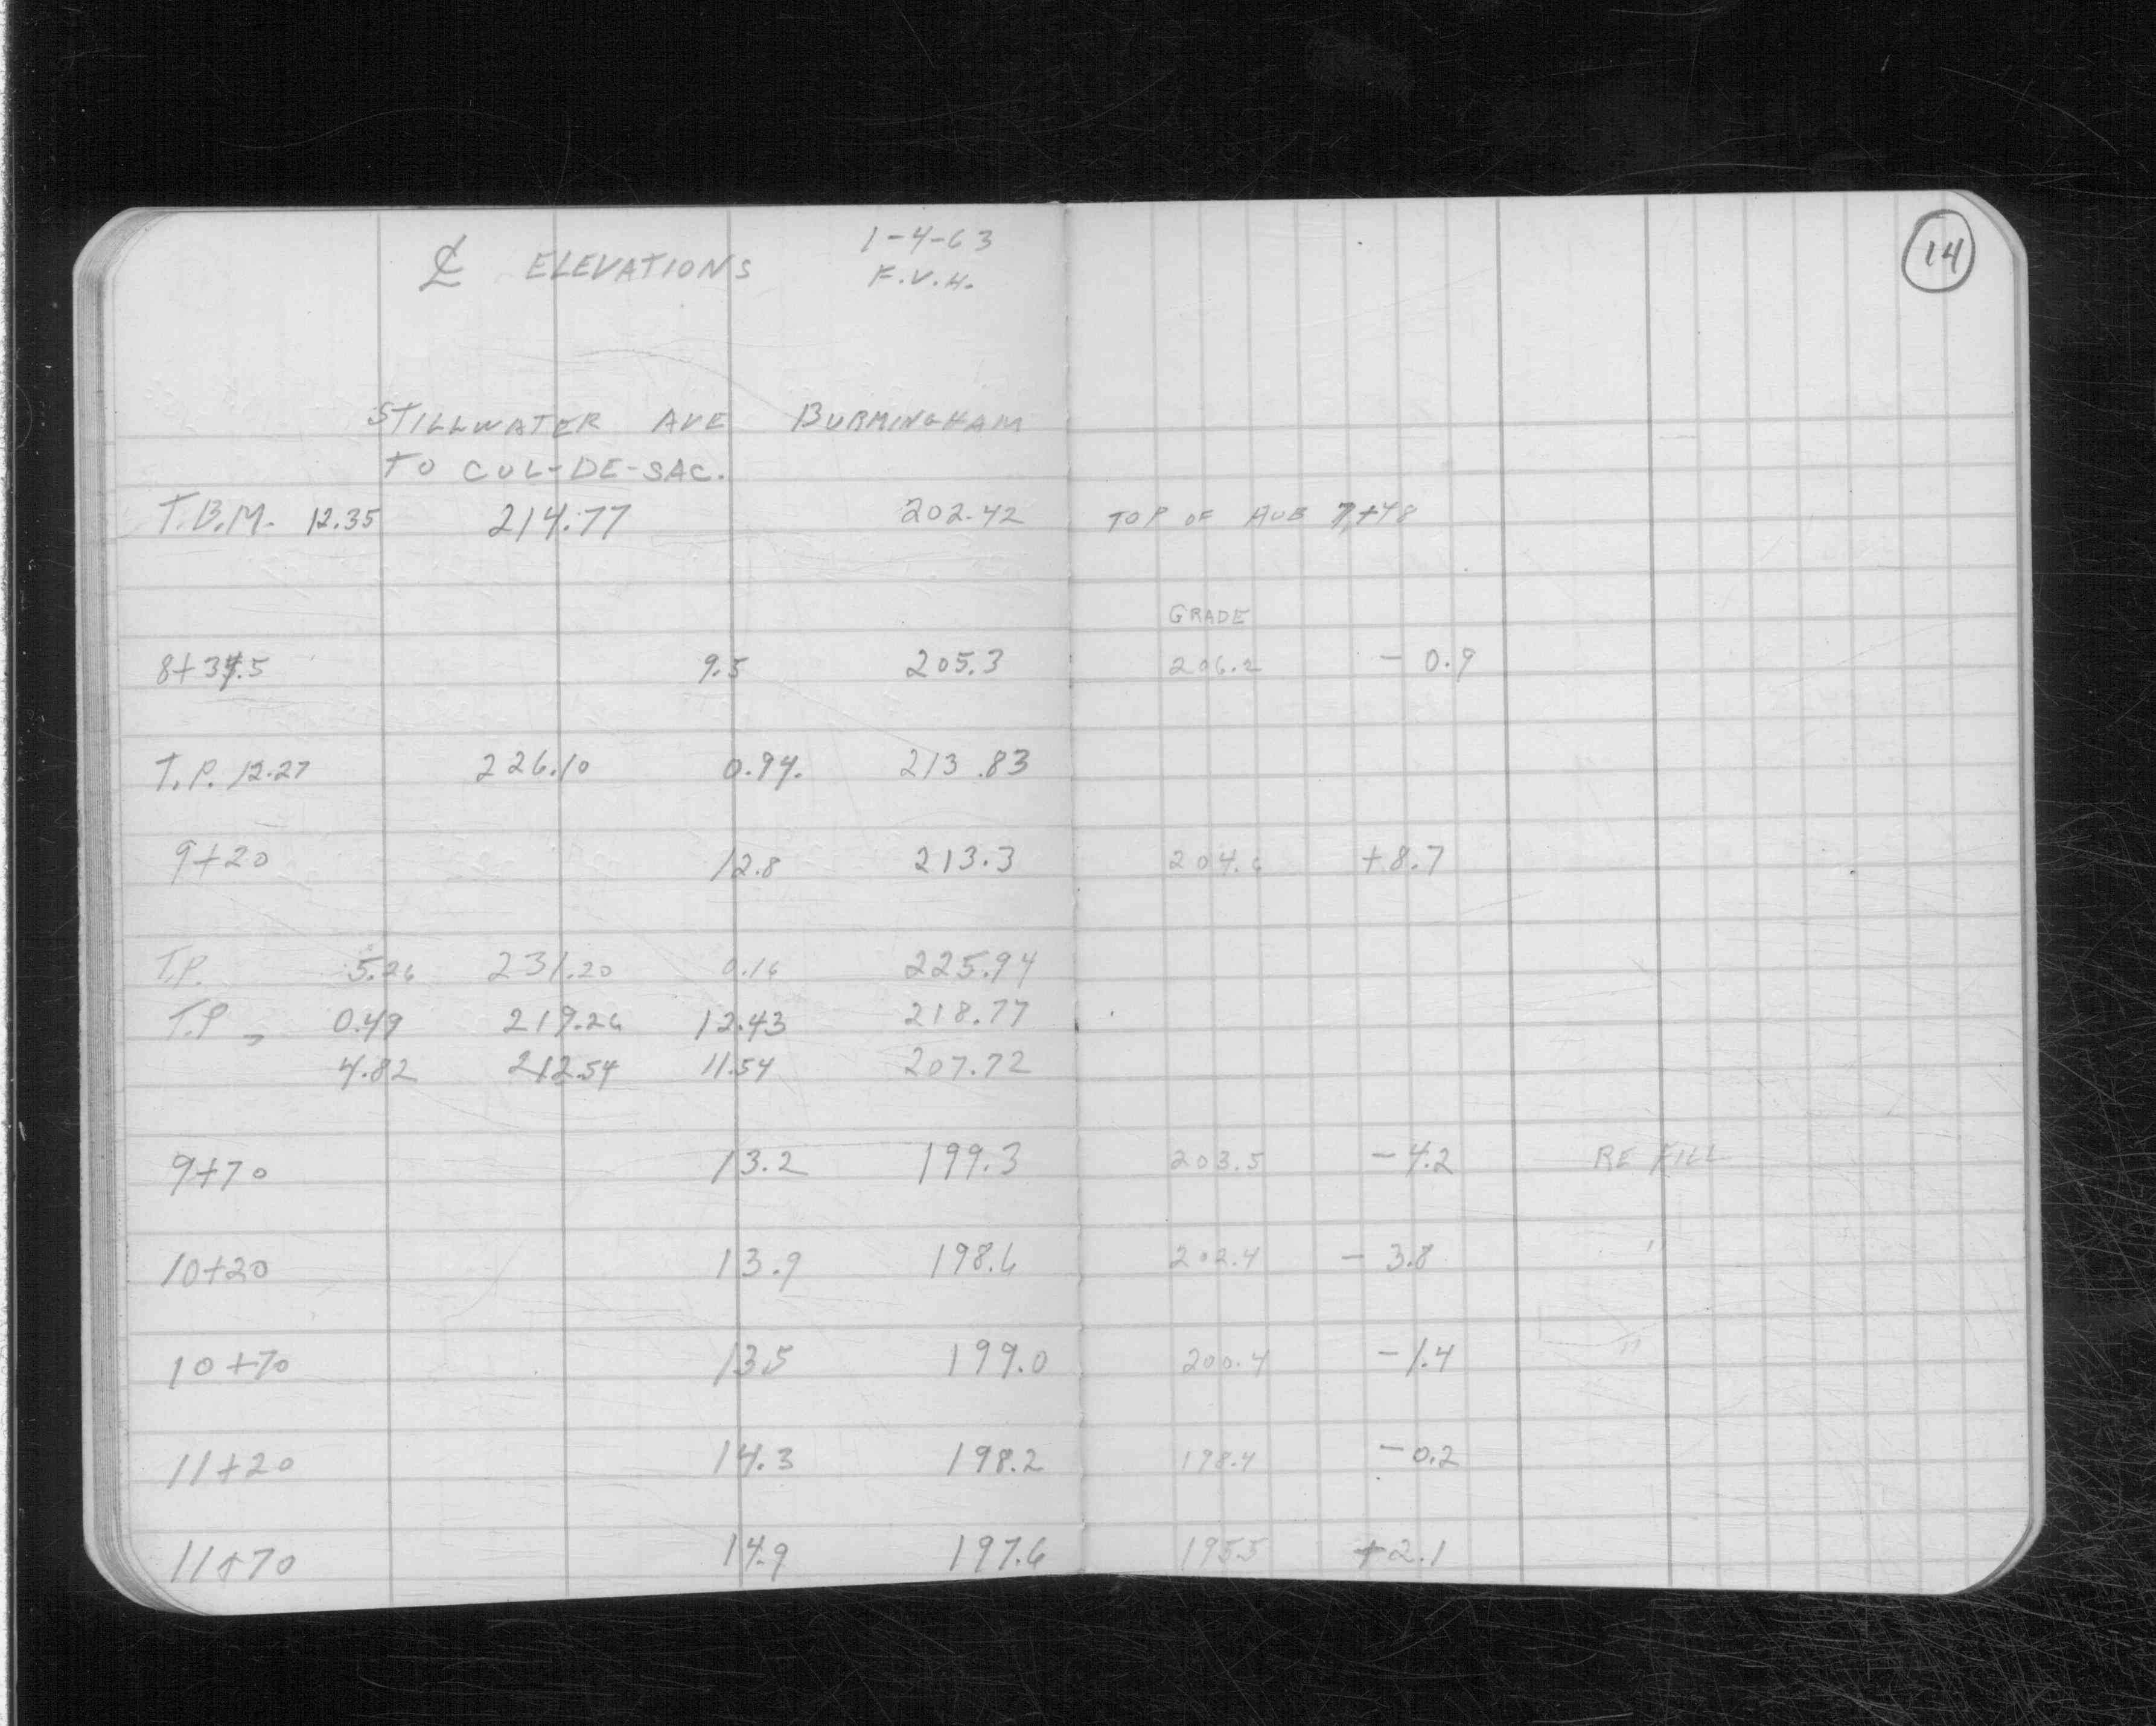 ℄ ELEVATIONS 1-4-63
F.V.H.
14
STILLWATER AVE BURMINGHAM
TO CUL-DE-SAC.
T.B.M. 12.35 214.77 202.42 TOP OF HUB 7+48
GRADE
8+34.5 9.5 205.3 206.2 - 0.9
T.P. 12.27 226.10 0.94. 213.83
9+20 12.8 213.3 204.6 +8.7
T.P. 5.26 231.20 0.16 225.94
T.P 0.49 219.26 12.43 218.77
4.82 212.54 11.54 207.72
9+70 13.2 199.3 203.5 - 4.2 RE FILL
10+20 13.9 198.6 202.4 - 3.8 "
10+70 13.5 199.0 200.4 -1.4 "
11+20 14.3 198.2 198.4 -0.2
11+70 14.9 197.6 195.5 +2.1